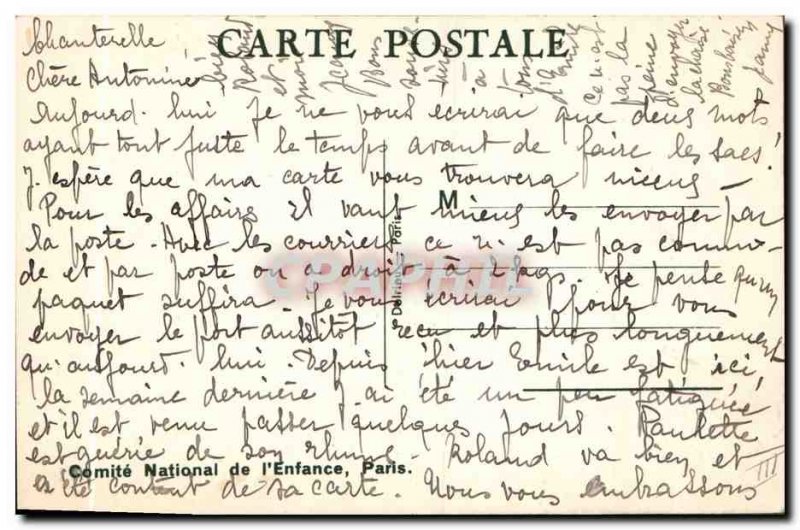 CARTE POSTALE
Chanterelle
Chère Antonine
aujourd'hui je ne vous écrirai que deux mots
ayant tout juste le temps avant de faire les sacs!
J'espère que ma carte vous trouvera mieux -
Pour les affaires il vaut mieux les envoyer par
la poste. Avec les courriers ce n'est pas commo-
de et par poste on a droit à 2 kgs. Je pense qu'un
paquet suffira. Je vous écrirai pour vous
envoyer le port aussitôt reçu et plus longuement
qu'aujourd'hui. Depuis hier Emile est ici,
la semaine dernière j'ai été un peu fatiguée
et il est venu passer quelques jours. Paulette
est guérie de son rhume. Roland va bien et
a été content de sa carte. Nous vous embrassons
III
bien
Roland
et
moi
Bons
à
tous
d'Emile
ce n'est
pas la
peine
d'envoyer
la chaise
M
Delrieu - Paris
CPAPHIL
Comité National de l'Enfance, Paris.